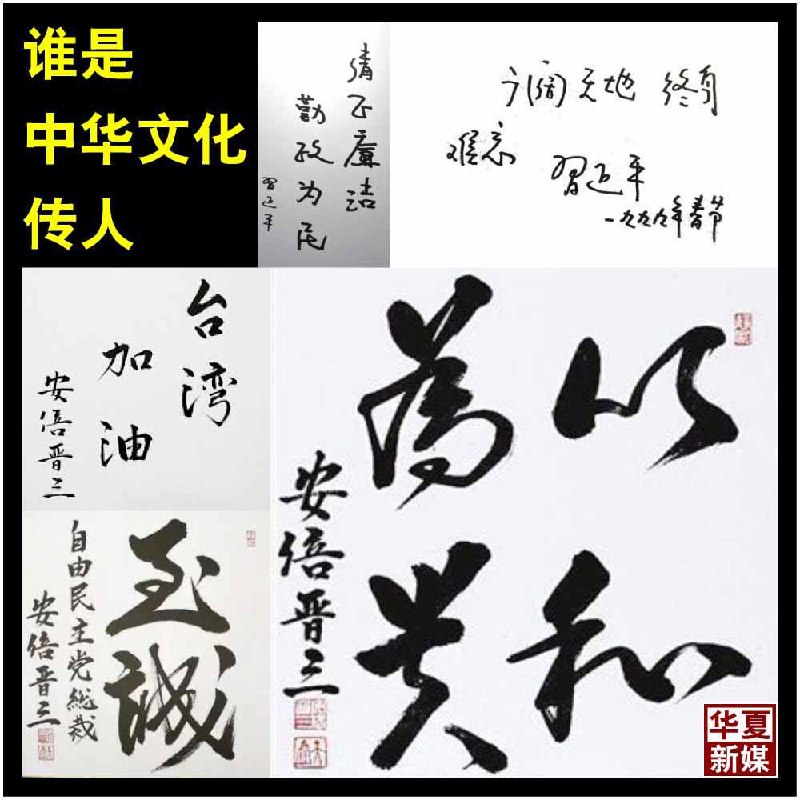 谁是
中华文化
传人
清正廉洁
勤政为民
習近平
广阔天地 终身
难忘
習近平
一九九九年春节
台湾
加油
安倍晋三
以和
為貴
安倍晋三
至誠
自由民主党総裁
安倍晋三
华夏
新媒